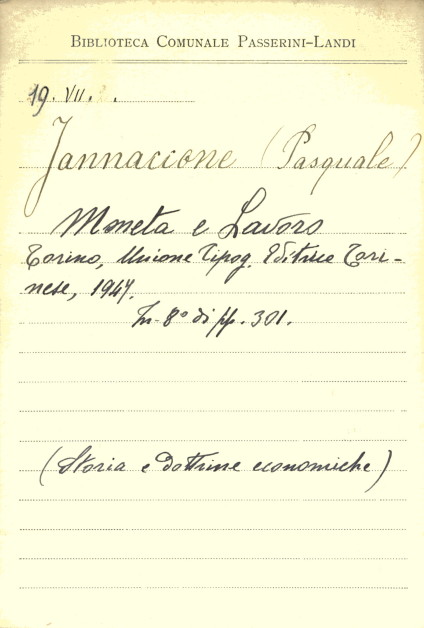 BIBLIOTECA COMUNALE PASSERINI-LANDI
19. VII. .
Jannaccone (Pasquale)
Moneta e Lavoro
Torino, Unione Tipog. Editrice Tori-
nese, 1947.
In-8° di pp. 301.
(Storia e dottrine economiche)